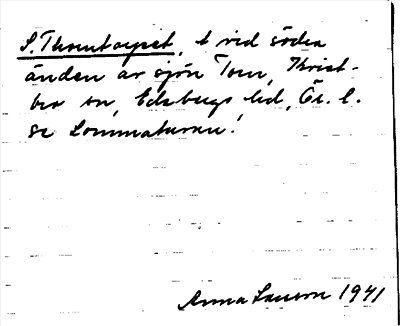 S. Thomtorpet, t vid södra
änden av sjön Tom, Krist-
bro sn, Edsbergs hd, Ör. l.
se Lommaturen!
Anna Larsson 1941